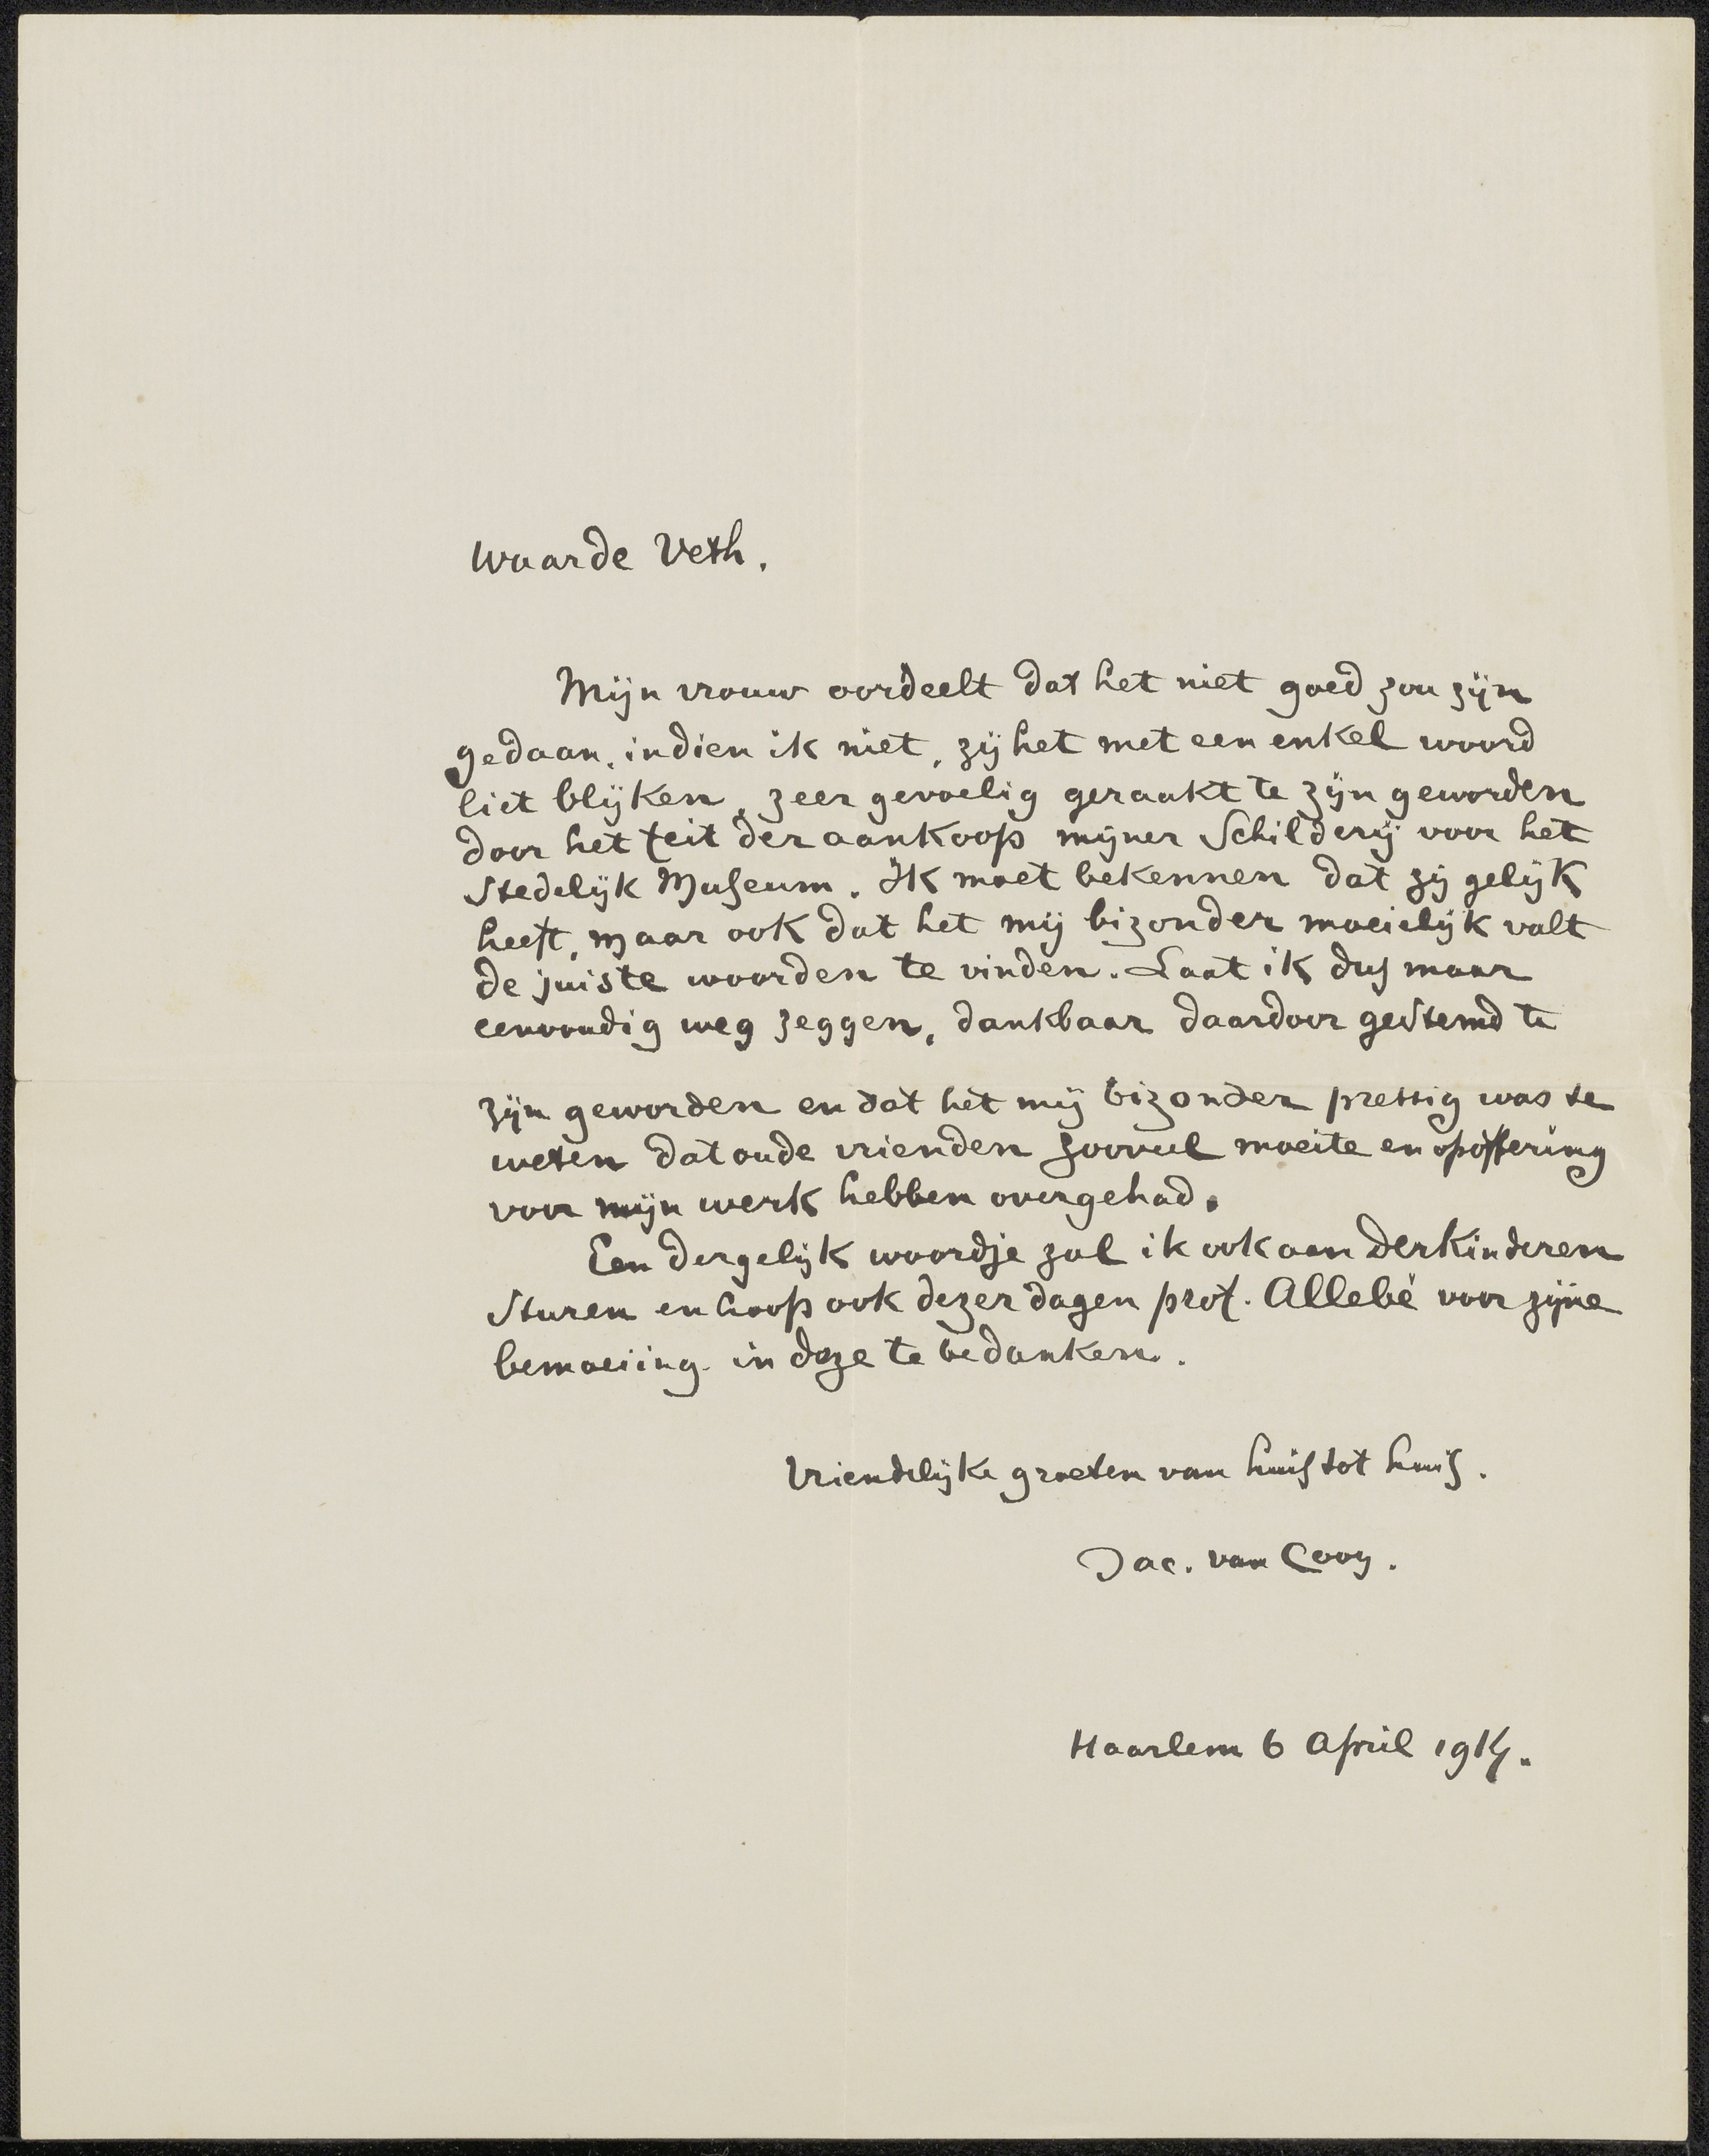 Waarde Veth.
Mijn vrouw oordeelt dat het niet goed zou zijn
gedaan, indien ik niet, zij het met een enkel woord
liet blijken, zeer gevoelig geraakt te zijn geworden
door het feit der aankoop mijner Schilderij voor het
Stedelijk Museum. Ik moet bekennen dat zij gelijk
heeft, maar ook dat het mij bizonder moeielijk valt
de juiste woorden te vinden. Laat ik dus maar
eenvoudig weg zeggen, dankbaar daardoor gestemd te
zijn geworden en dat het mij bizonder prettig was te
weten dat oude vrienden zooveel moeite en opoffering
voor mijn werk hebben overgehad.
Een dergelijk woordje zal ik ook aan Derkinderen
sturen en hoop ook dezer dagen prof. Allebé voor zijne
bemoeiing in deze te bedanken.
Vriendelijke groeten van huis tot huis.
Jac. van Looy.
Haarlem 6 April 1914.